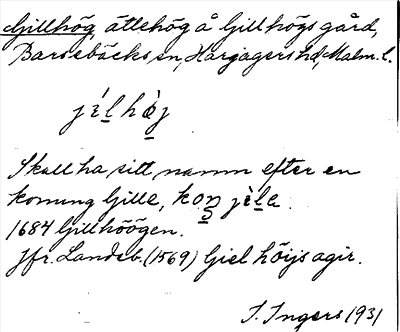 Gillhög, ättehög å Gillhögs gård,
Barsebäcks sn, Harjagers hd, Malm. l.
jèl hö̀j
Skall ha sitt namn efter en
konung Gille, koŋ jèle.
1684 Gillhöögen.
Jfr. Landsb. (1569) Giel höijs agir.
I. Ingers 1931